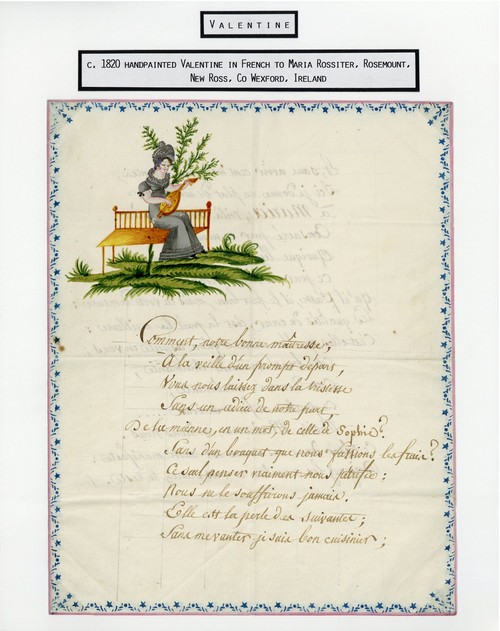 VALENTINE
C. 1820 HANDPAINTED VALENTINE IN FRENCH TO MARIA ROSSITER, ROSEMOUNT,
NEW ROSS, CO WEXFORD, IRELAND
Comment, notre bonne maîtresse,
À la veille d'un prompt départ,
Vous nous laissez dans la tristesse
Sans un adieu de notre part,
De la mienne, en un mot, de celle à Sophie?
Sans d'un bouquet que nous fassions les frais?
Ce seul penser vraiment nous pétrifie;
Nous ne le souffrirons jamais.
Elle est la perle des suivantes;
Sans me vanter je suis bon cuisinier;